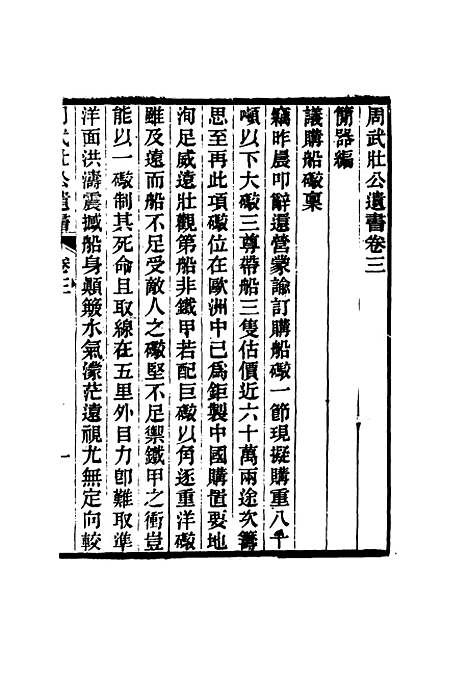 周武壯公遺書卷三
簡器編
議購船礮稟
竊昨晨叩辭還營蒙諭訂購船礮一節現擬購重八十
噸以下大礮三尊帶船三隻估價近六十萬兩途次籌
思至再此項礮位在歐洲中已爲鉅製中國購置要地
洵足威遠壯觀第船非鐵甲若配巨礮以角逐重洋礮
雖及遠而船不足受敵人之礮堅不足禦鐵甲之衝豈
能以一礮制其死命且取線在五里外目力卽難取準
洋面洪濤震撼船身顚簸水氣濛茫遠視尤無定向較
周武壯公遺書 卷三 一